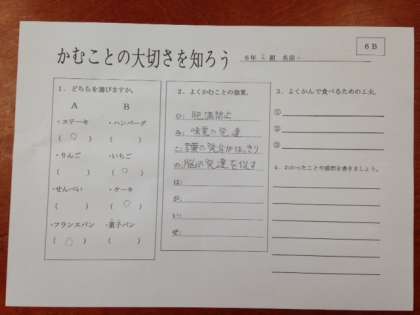 6B
かむことの大切さを知ろう
6年 組 名前
1. どちらを選びますか。
A B
・ステーキ ・ハンバーグ
(○) ( )
・りんご ・いちご
( ) (○)
・せんべい ・ケーキ
( ) (○)
・フランスパン ・菓子パン
(○) ( )
2. よくかむことの効果。
ひ: 肥満禁止
み: 味覚の発達
こ: 言葉の発音がはっきり
の: 脳の発達を促す
は:
が:
い:
ぜ:
3. よくかんで食べるための工夫。
①
②
③
4. わかったことや感想を書きましょう。